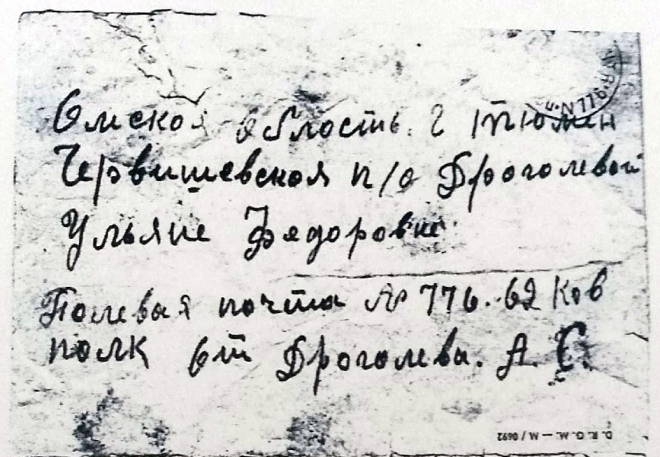 Омская область. г Тюмен
Червишевская п/о Дроголевой
Ульяне Федоровне
Полевая почта № 776.. 62 Кав
полк от Дроголева. А. С.
D. R. G. M. — M / 0692